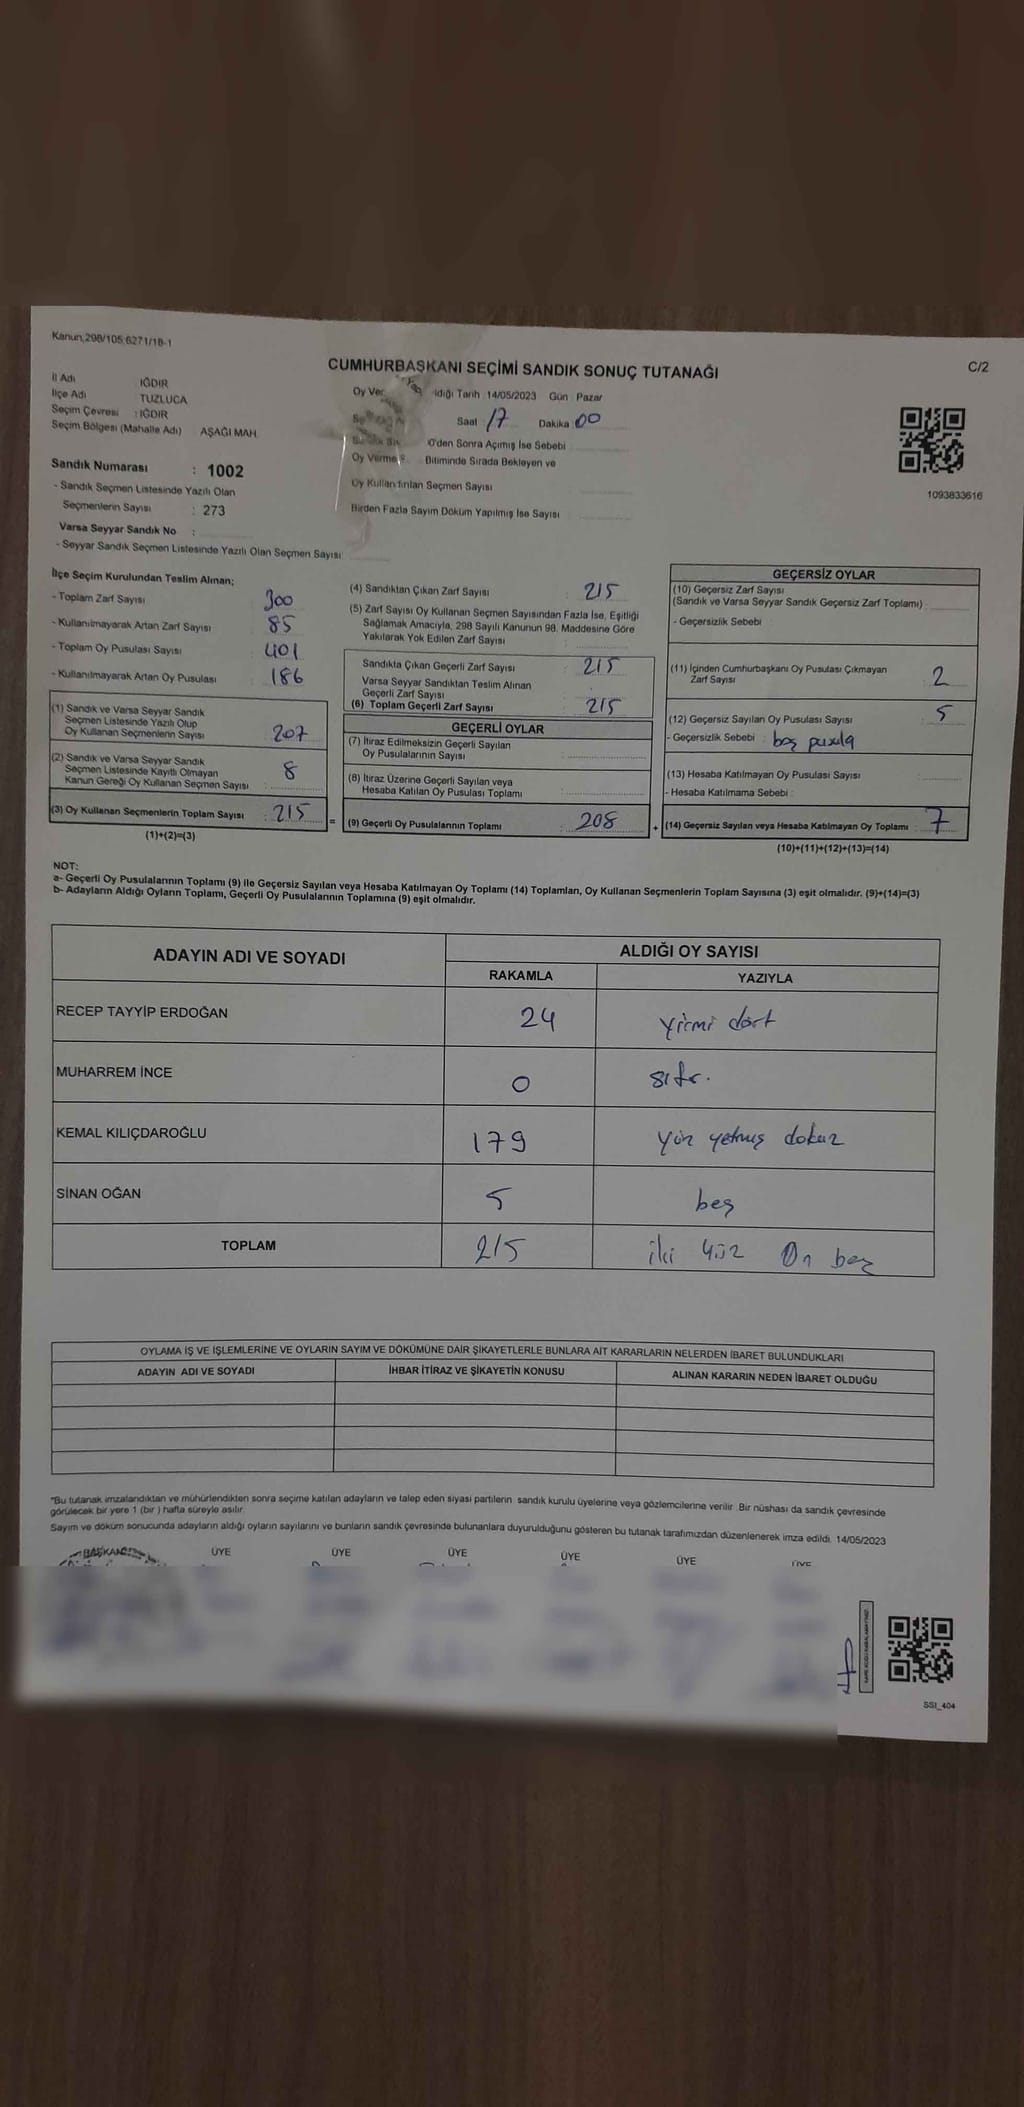 Kanun;298/105;6271/18-1
CUMHURBAŞKANI SEÇİMİ SANDIK SONUÇ TUTANAĞI
C/2
İl Adı IĞDIR
İlçe Adı TUZLUCA
Seçim Çevresi : IĞDIR
Seçim Bölgesi (Mahalle Adı) AŞAĞI MAH.
Oy Ver ıldığı Tarih : 14/05/2023 Gün Pazar
Saat 17 Dakika 00
0'den Sonra Açılmış İse Sebebi
Oy Verme Bitiminde Sırada Bekleyen ve
Oy Kullandırılan Seçmen Sayısı
Birden Fazla Sayım Döküm Yapılmış İse Sayısı
1093833616
Sandık Numarası : 1002
- Sandık Seçmen Listesinde Yazılı Olan
Seçmenlerin Sayısı : 273
Varsa Seyyar Sandık No :
- Seyyar Sandık Seçmen Listesinde Yazılı Olan Seçmen Sayısı:
İlçe Seçim Kurulundan Teslim Alınan;
- Toplam Zarf Sayısı 300
- Kullanılmayarak Artan Zarf Sayısı 85
- Toplam Oy Pusulası Sayısı 401
- Kullanılmayarak Artan Oy Pusulası 186
(1) Sandık ve Varsa Seyyar Sandık
Seçmen Listesinde Yazılı Olup
Oy Kullanan Seçmenlerin Sayısı 207
(2) Sandık ve Varsa Seyyar Sandık
Seçmen Listesinde Kayıtlı Olmayan
Kanun Gereği Oy Kullanan Seçmen Sayısı 8
(3) Oy Kullanan Seçmenlerin Toplam Sayısı : 215
(1)+(2)=(3)
(4) Sandıktan Çıkan Zarf Sayısı : 215
(5) Zarf Sayısı Oy Kullanan Seçmen Sayısından Fazla İse, Eşitliği
Sağlamak Amacıyla, 298 Sayılı Kanunun 98. Maddesine Göre
Yakılarak Yok Edilen Zarf Sayısı
Sandıkta Çıkan Geçerli Zarf Sayısı : 215
Varsa Seyyar Sandıktan Teslim Alınan
Geçerli Zarf Sayısı
(6) Toplam Geçerli Zarf Sayısı : 215
GEÇERLİ OYLAR
(7) İtiraz Edilmeksizin Geçerli Sayılan
Oy Pusulalarının Sayısı
(8) İtiraz Üzerine Geçerli Sayılan veya
Hesaba Katılan Oy Pusulası Toplamı
= (9) Geçerli Oy Pusulalarının Toplamı : 208
GEÇERSİZ OYLAR
(10) Geçersiz Zarf Sayısı
(Sandık ve Varsa Seyyar Sandık Geçersiz Zarf Toplamı) :
- Geçersizlik Sebebi
(11) İçinden Cumhurbaşkanı Oy Pusulası Çıkmayan
Zarf Sayısı 2
(12) Geçersiz Sayılan Oy Pusulası Sayısı : 5
- Geçersizlik Sebebi : boş pusula
(13) Hesaba Katılmayan Oy Pusulası Sayısı
- Hesaba Katılmama Sebebi :
+ (14) Geçersiz Sayılan veya Hesaba Katılmayan Oy Toplamı : 7
(10)+(11)+(12)+(13)=(14)
NOT:
a- Geçerli Oy Pusulalarının Toplamı (9) ile Geçersiz Sayılan veya Hesaba Katılmayan Oy Toplamı (14) Toplamları, Oy Kullanan Seçmenlerin Toplam Sayısına (3) eşit olmalıdır. (9)+(14)=(3)
b- Adayların Aldığı Oyların Toplamı, Geçerli Oy Pusulalarının Toplamına (9) eşit olmalıdır.
ADAYIN ADI VE SOYADI ALDIĞI OY SAYISI
RAKAMLA YAZIYLA
RECEP TAYYİP ERDOĞAN 24 yirmi dört
MUHARREM İNCE 0 sıfır.
KEMAL KILIÇDAROĞLU 179 yüz yetmiş dokuz
SİNAN OĞAN 5 beş
TOPLAM 215 iki yüz On beş
OYLAMA İŞ VE İŞLEMLERİNE VE OYLARIN SAYIM VE DÖKÜMÜNE DAİR ŞİKAYETLERLE BUNLARA AİT KARARLARIN NELERDEN İBARET BULUNDUKLARI
ADAYIN ADI VE SOYADI İHBAR İTİRAZ VE ŞİKAYETİN KONUSU ALINAN KARARIN NEDEN İBARET OLDUĞU
"Bu tutanak imzalandıktan ve mühürlendikten sonra seçime katılan adayların ve talep eden siyasi partilerin sandık kurulu üyelerine veya gözlemcilerine verilir. Bir nüshası da sandık çevresinde
görülecek bir yere 1 (bir ) hafta süreyle asılır.
Sayım ve döküm sonucunda adayların aldığı oyların sayılarını ve bunların sandık çevresinde bulunanlara duyurulduğunu gösteren bu tutanak tarafımızdan düzenlenerek imza edildi. 14/05/2023
BAŞKAN ÜYE ÜYE ÜYE ÜYE ÜYE ÜYE
SSI_404